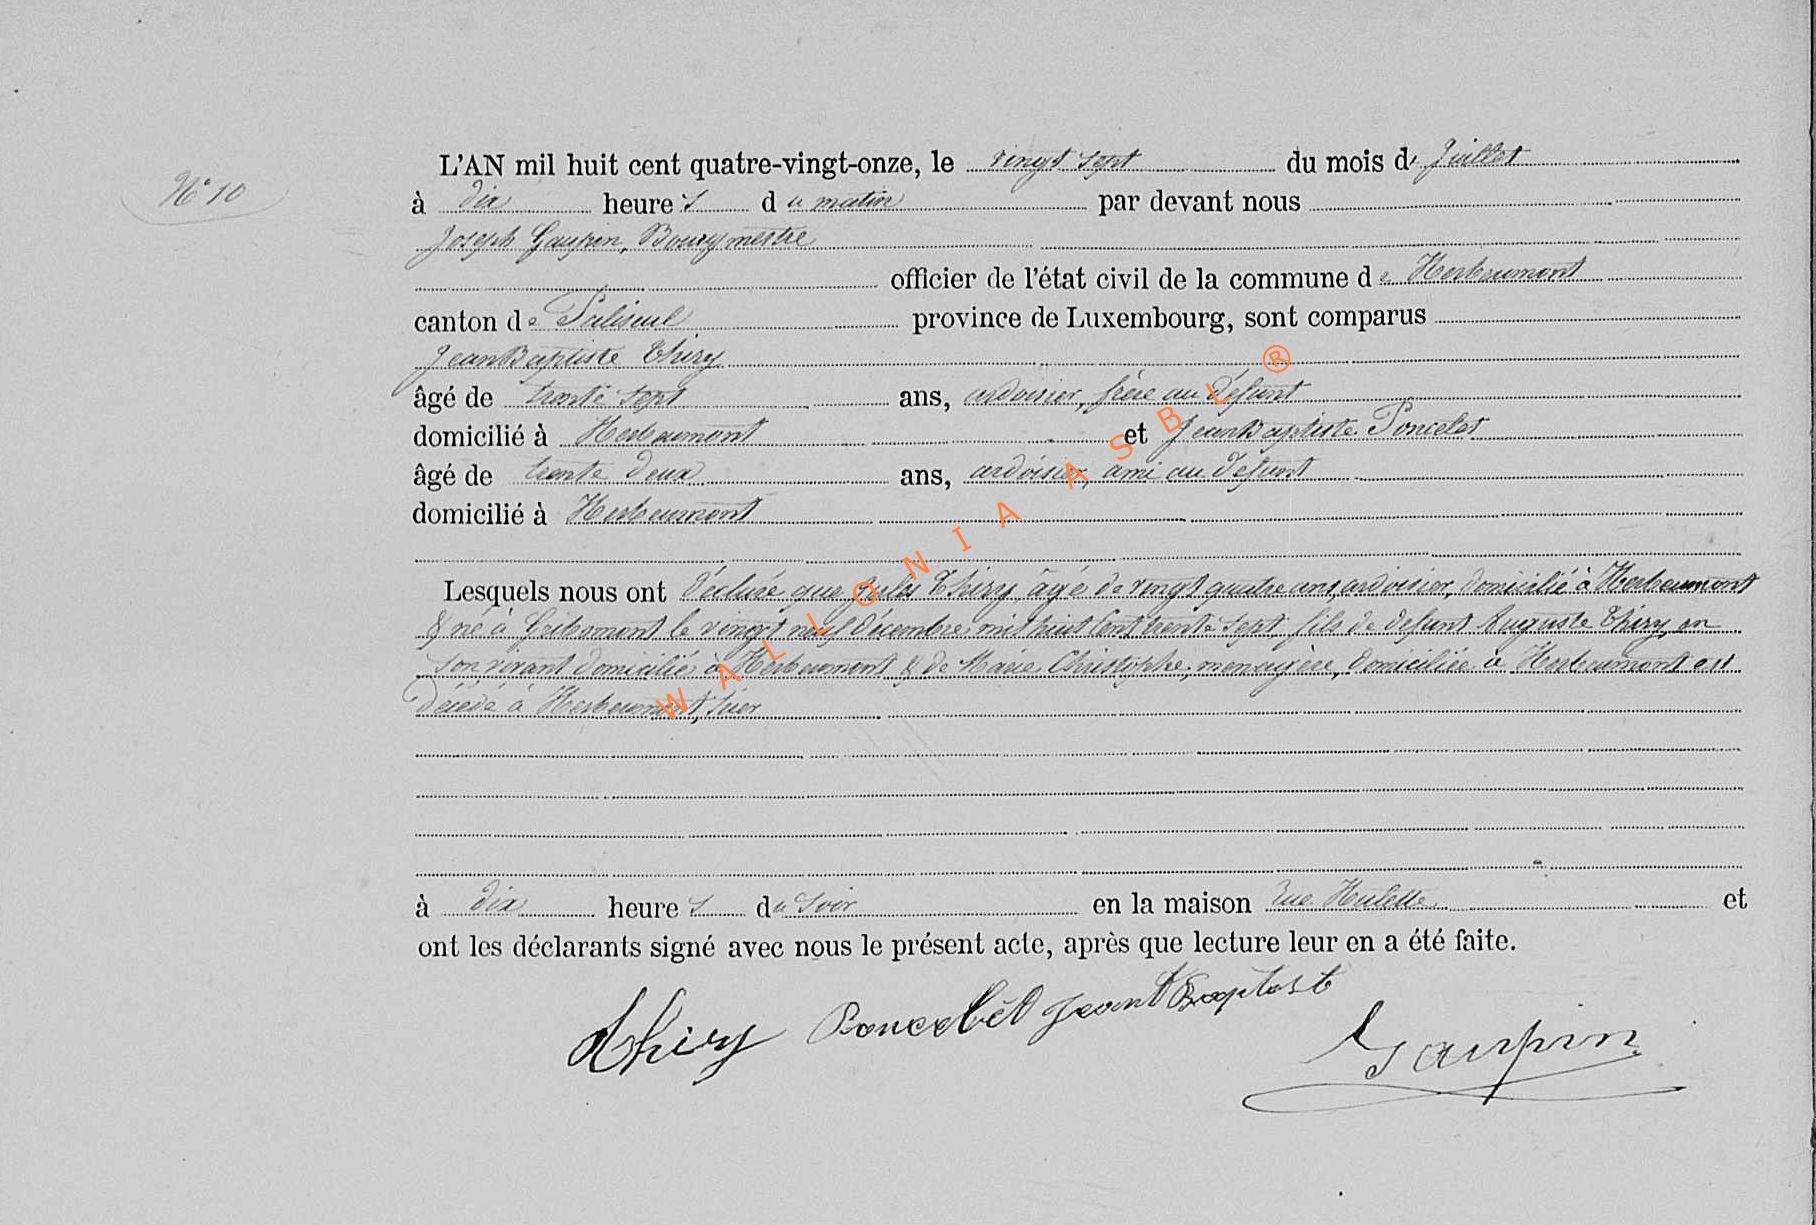 N° 10
L'AN mil huit cent quatre-vingt-onze, le vingt sept du mois de Juillet
à dix heures du matin par devant nous
Joseph Gaupin, Bourgmestre
officier de l'état civil de la commune de Herbeumont
canton de Paliseul province de Luxembourg, sont comparus
Jean Baptiste Thiry
âgé de trente sept ans, ardoisier, frère au défunt
domicilié à Herbeumont et Jean Baptiste Poncelet
âgé de trente deux ans, ardoisier, ami au défunt
domicilié à Herbeumont
Lesquels nous ont déclaré que Jules Thiry âgé de vingt quatre ans ardoisier, domicilié à Herbeumont
& né à le vingt neuf décembre mil huit cent trente sept fils de défunt Auguste Thiry en
son vivant domicilié à Herbeumont & de Marie Christophe, menagère, domiciliée à Herbeumont est
décédé à Herbeumont, hier
à dix heures du soir en la maison rue Hulette et
ont les déclarants signé avec nous le présent acte, après que lecture leur en a été faite.
Thiry Poncelêt Jean Baptist
Gaupin
WALLONIA ASBL ®